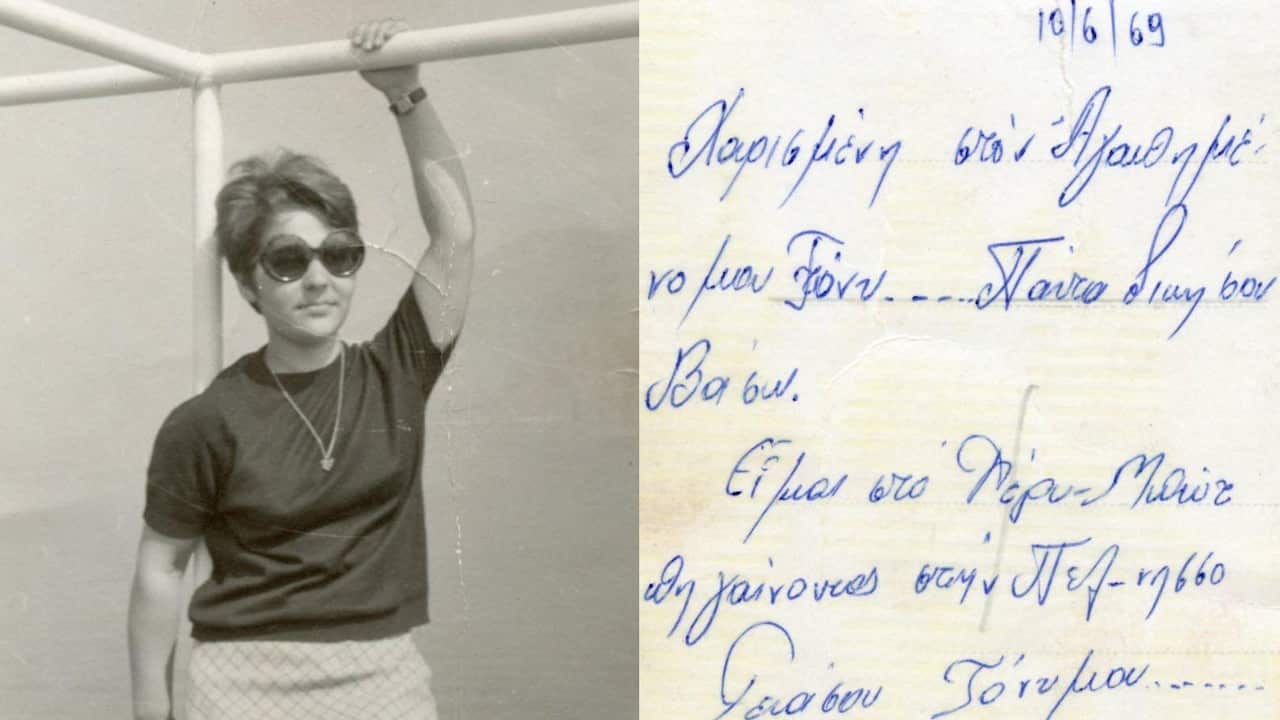 10/6/69
Χαρισμένη στὸν Ἀγαπημέ-
νο μου Τόνυ.....Πάντα δικη σου
Βάσω.
Εἶμαι στὸ Φέρυ-Μπὼτ
πηγαίνοντας στὴν Πελ-νησσο
Γειάσου Τόνυ μου........